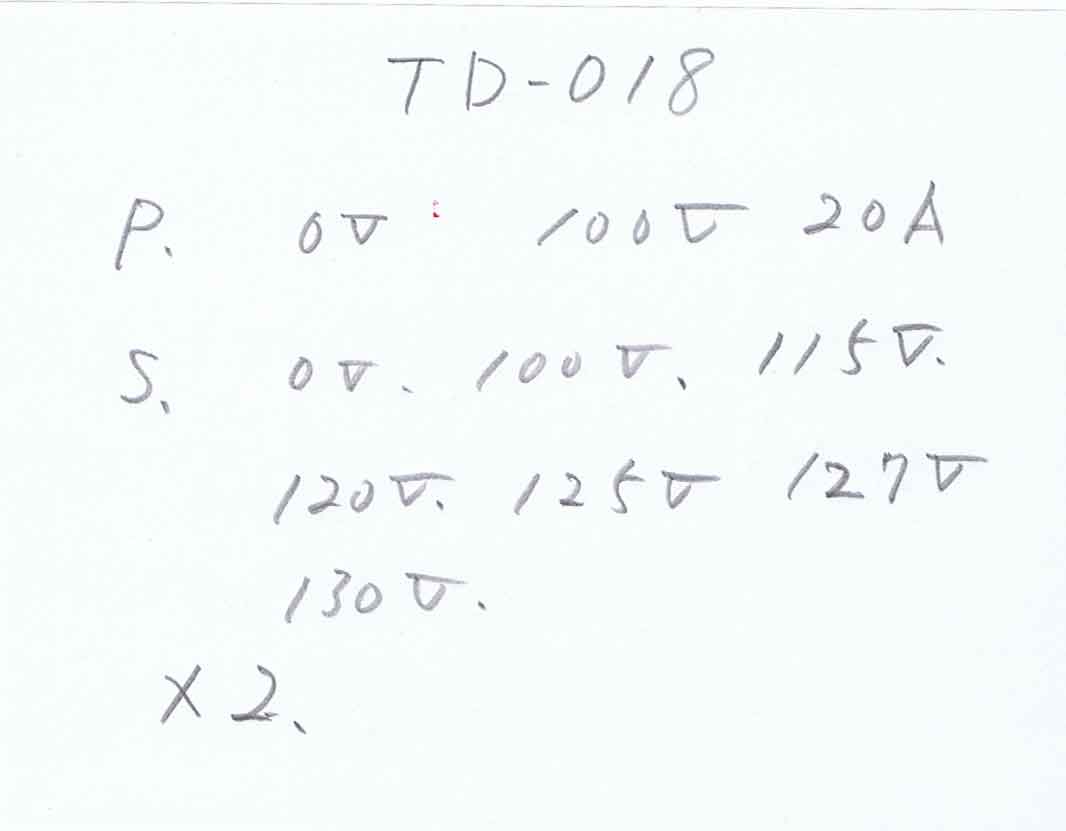 TD-018
P. 0V 100V 20A
S. 0V. 100V. 115V.
120V. 125V 127V
130V.
×2.